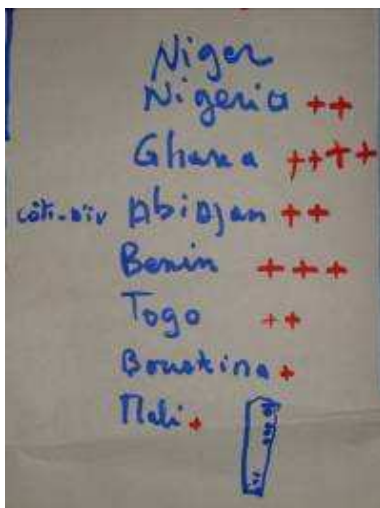 Niger
Nigeria ++
Ghana ++++
côti-d'iv Abidjan ++
Benin +++
Togo ++
Bourkina +
Mali +